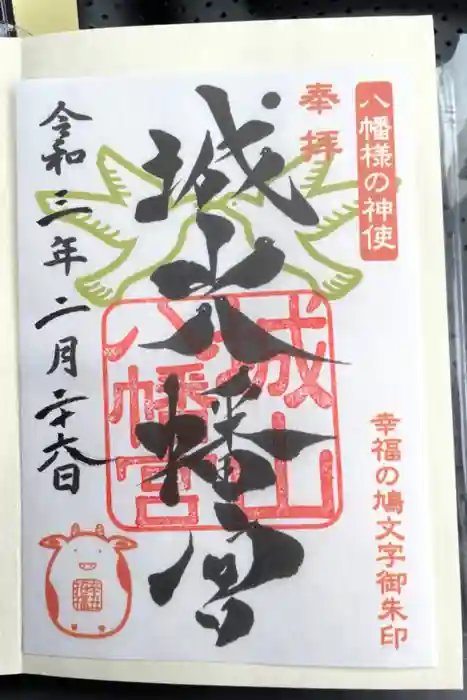 八幡様の神使
幸福の鳩文字御朱印
奉拝
城山八幡宮
城山
八幡宮
令和三年二月二十六日